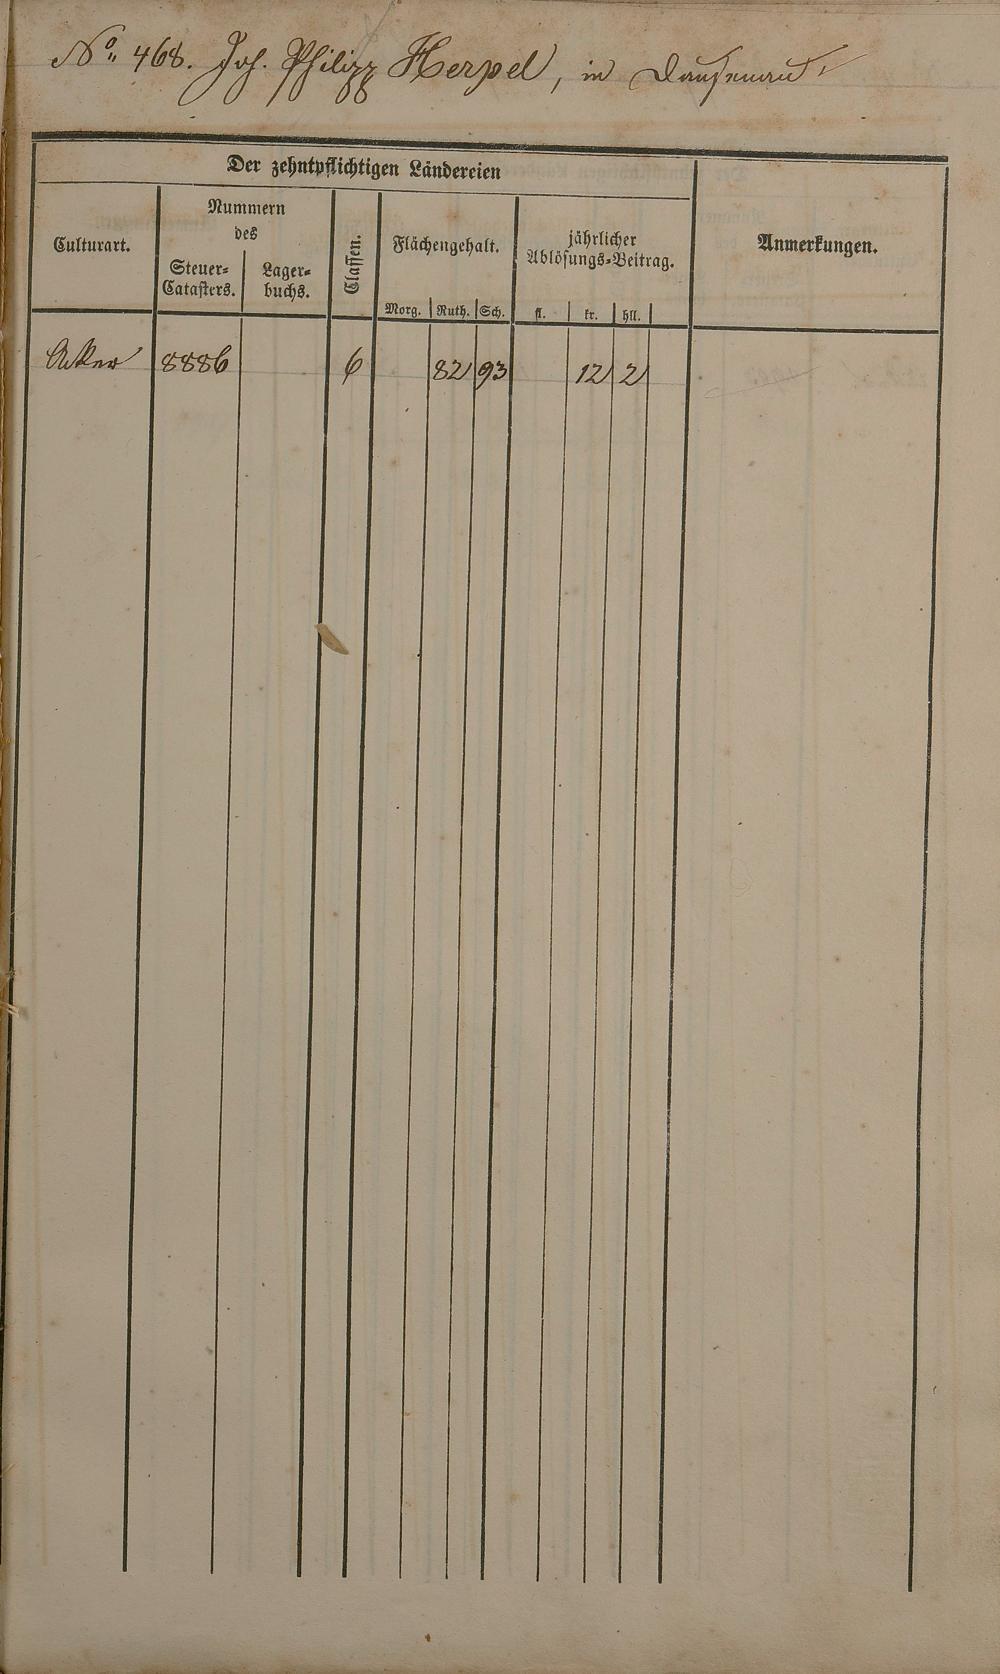 No. 468. Joh. Philipp Herpel, in Dausenau
Der zehntpflichtigen Ländereien
Culturart.
Nummern
des
Steuer-
Catasters.
Lager-
buchs.
Classen.
Flächengehalt.
Morg. Ruth. Sch.
jährlicher
Ablösungs-Beitrag.
fl. kr. hll.
Anmerkungen.
Acker 8886 6 82 93 12 2